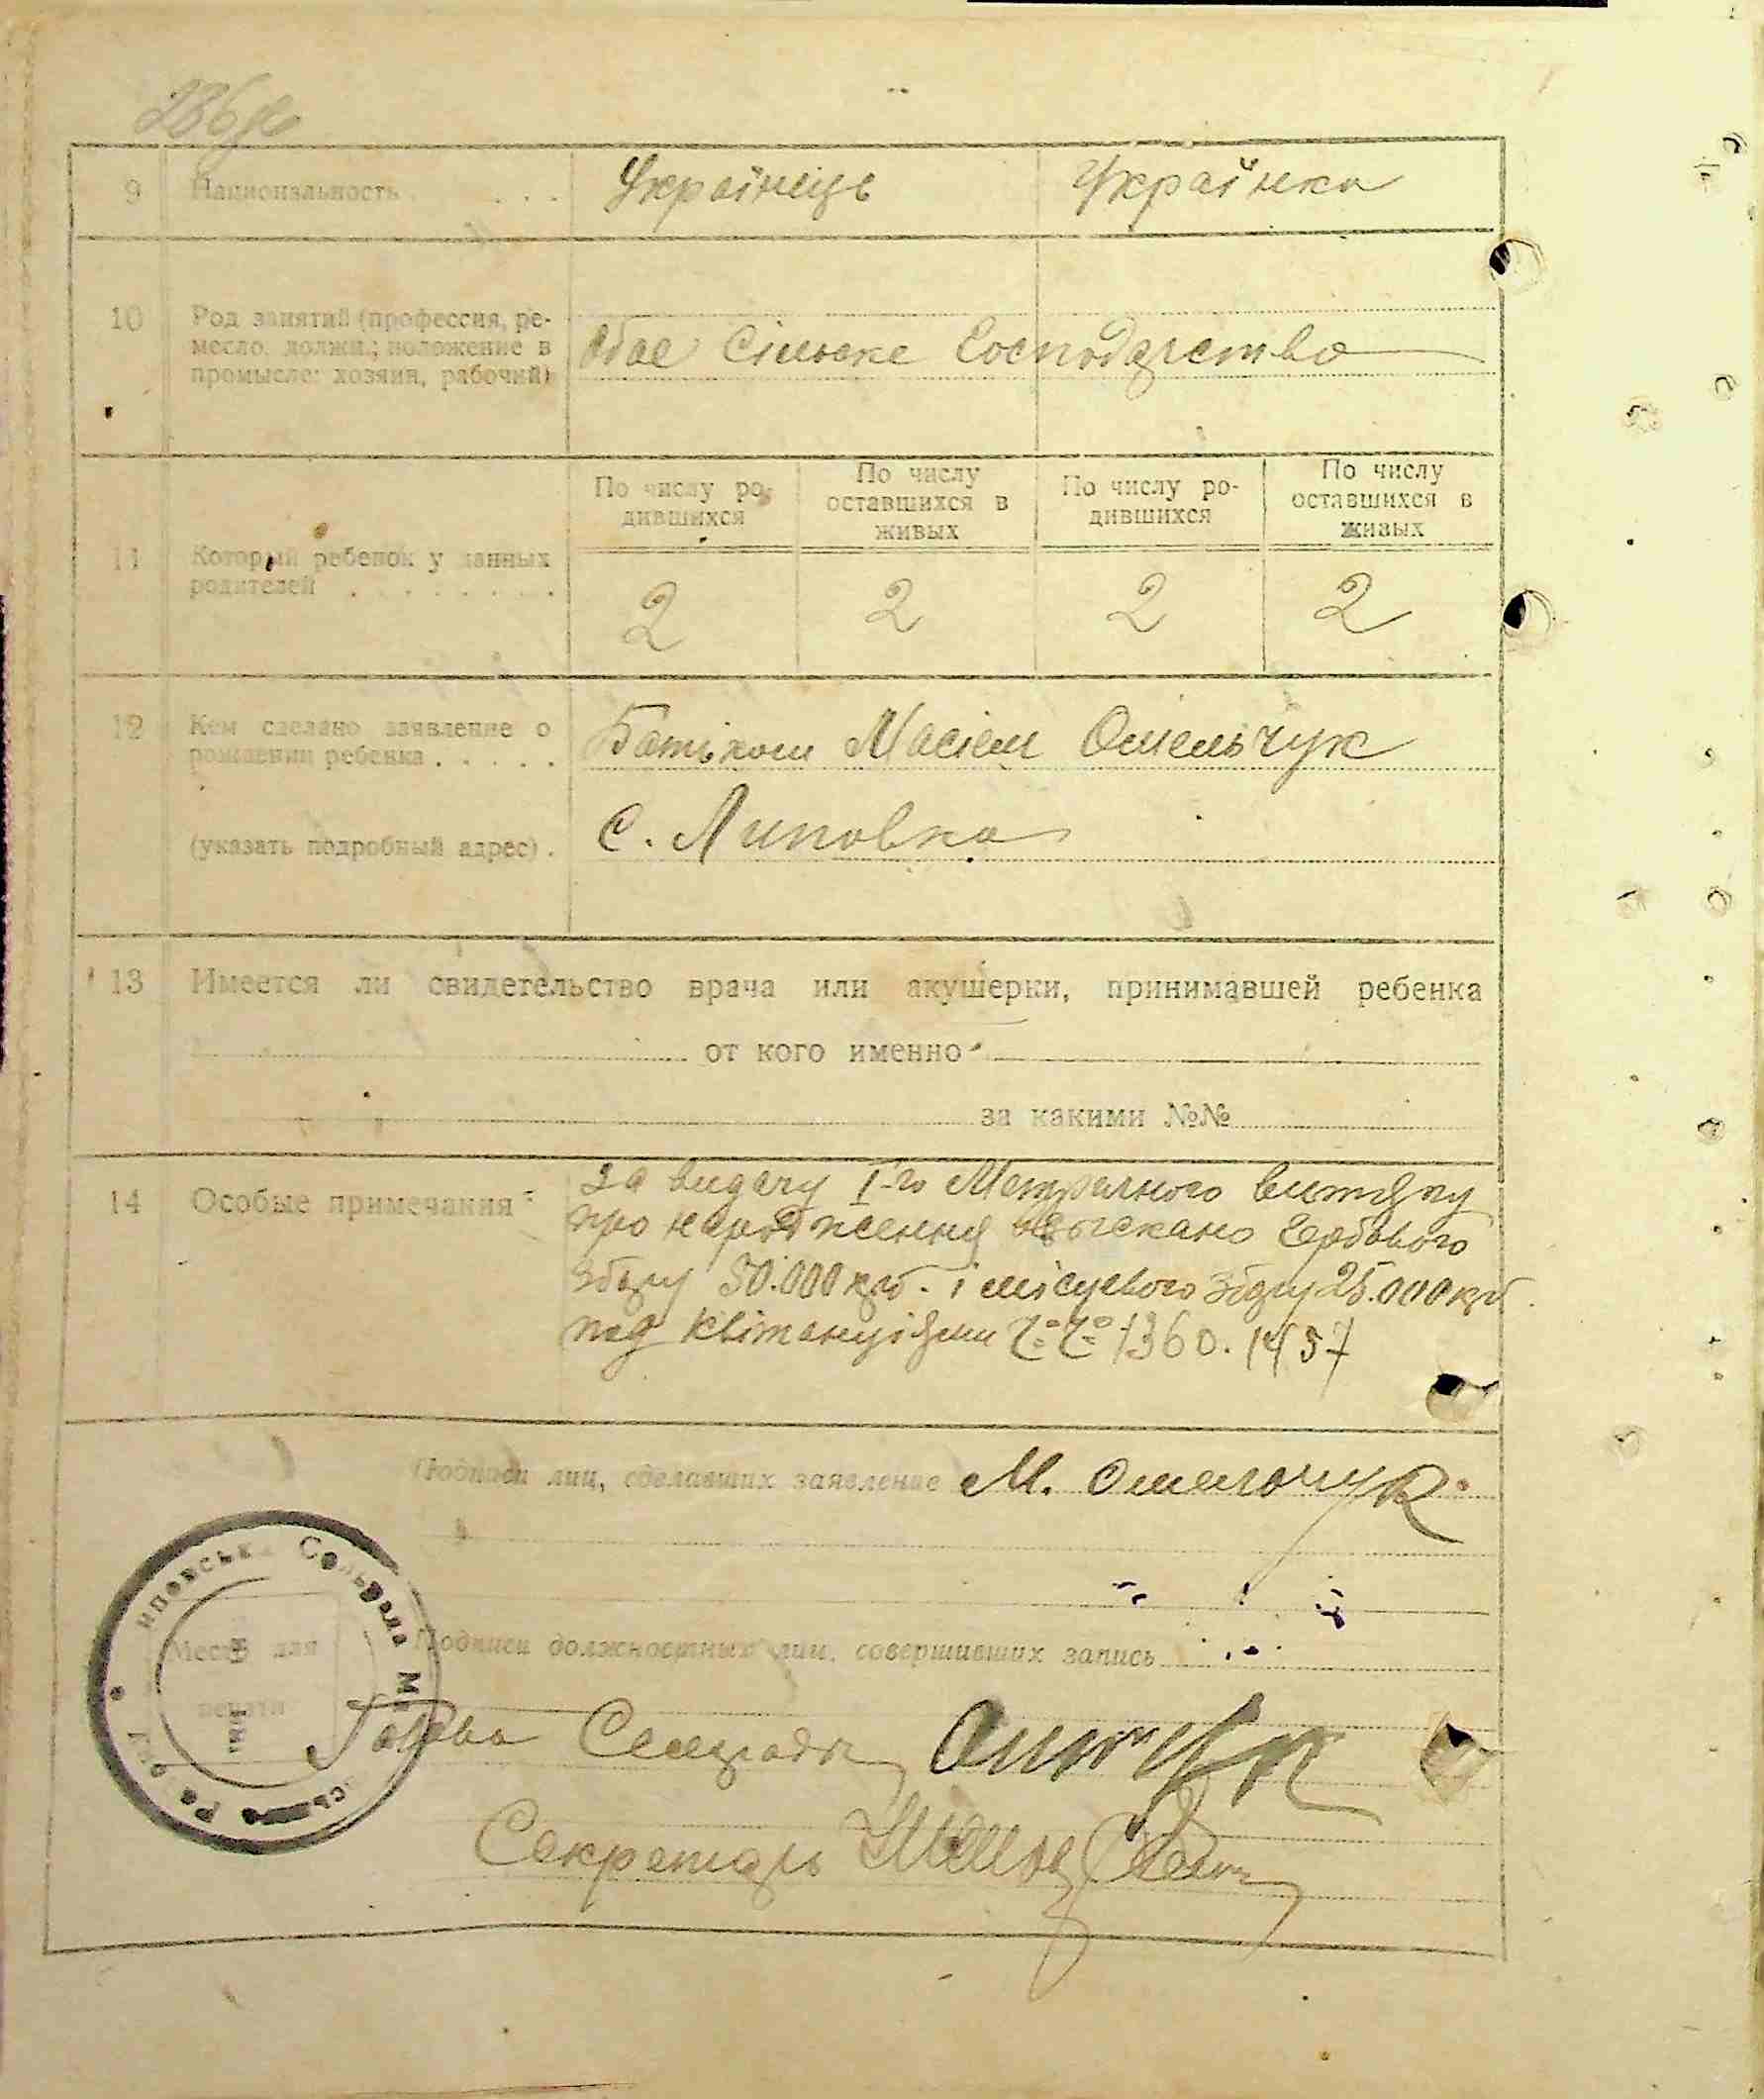 9 Национальность . . . . Українець Українка
10 Род занятий (профессия, ре-
месло, должн.; положение в
промысле: хозяин, рабочий)
Обое Сільске Господарство
11 Который ребенок у данных
родителей . . . . . . . .
По числу ро-
дившихся
По числу
оставшихся в
живых
По числу ро-
дившихся
По числу
оставшихся в
живых
2 2 2 2
12 Кем сделано заявление о
рождении ребенка . . . . .
Батьком Омельчук
(указать подробный адрес) . С. Липовка
13 Имеется ли свидетельство врача или акушерки, принимавшей ребенка
от кого именно
за какими №№
14 Особые примечания:
За видачу 1-го Метричного витягу
про народження взыскано Гербового
збору 50.000 крб. і місцевого збору 25.000 крб.
под квітанціями 1360. 1457
Подписи лиц, сделавших заявление М. Омельчук
Место для
печати
Подписи должностных лиц, совершивших запись
Голова Сельради
Секретарь